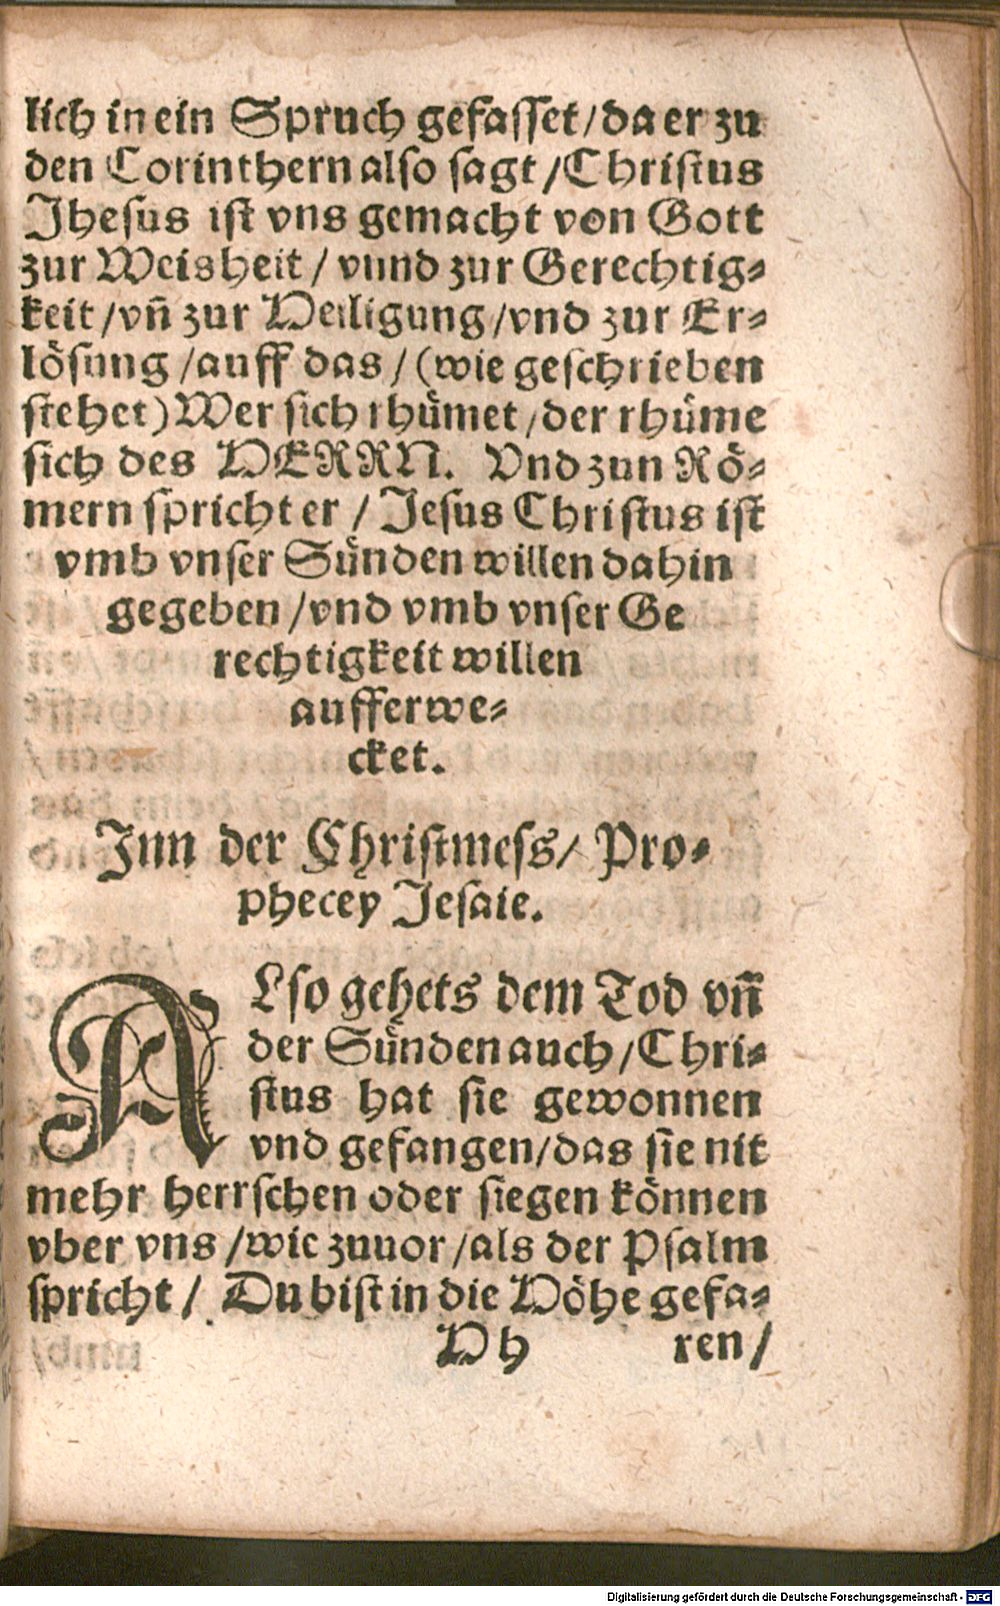 lich in ein Spruch gefasset / da er zu
den Corinthern also sagt / Christus
Jhesus ist vns gemacht von Gott
zur Weisheit / vnnd zur Gerechtig-
keit / vn̄ zur Heiligung / vnd zur Er-
lösung / auff das / (wie geschrieben
stehet) Wer sich rhümet / der rhüme
sich des HERRN. Vnd zun Rö-
mern spricht er / Jesus Christus ist
vmb vnser Sünden willen dahin
gegeben / vnd vmb vnser Ge
rechtigkeit willen
aufferwe-
cket.
Jnn der Christmess / Pro-
phecey Jesaie.
ALso gehets dem Tod vn̄
der Sünden auch / Chri-
stus hat sie gewonnen
vnd gefangen / das sie nit
mehr herrschen oder siegen können
vber vns / wie zuuor / als der Psalm
spricht / Du bist in die Höhe gefa-
Hh ren /
Digitalisierung gefördert durch die Deutsche Forschungsgemeinschaft - DFG